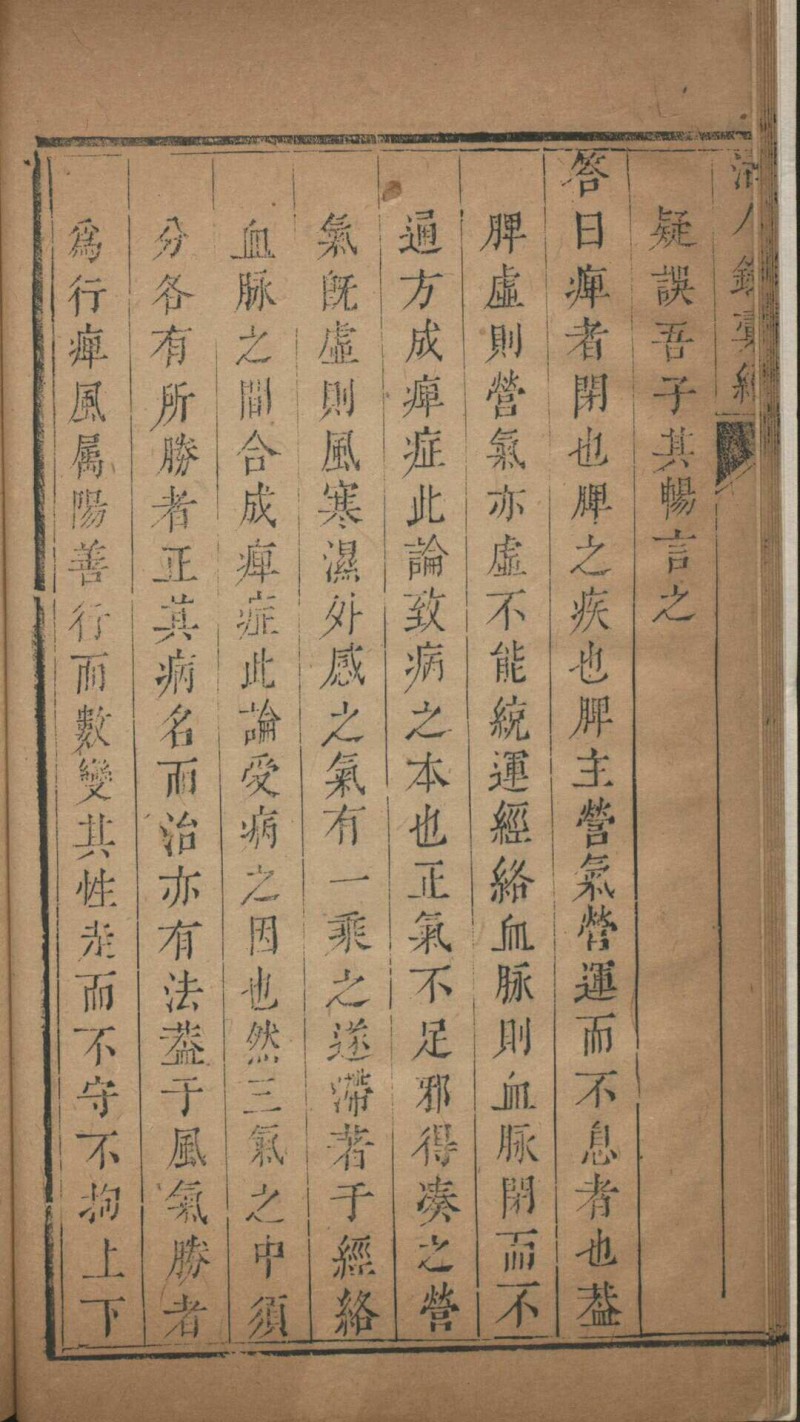 疑誤吾子其暢言之
答曰痺者閉也脾之疾也脾主營氣營運而不息者也葢
脾虛則營氣亦虛不能統運經絡血脉則血脉閉而不
通方成痺症此論致病之本也正氣不足邪得凑之營
氣旣虛則風寒濕外感之氣有一乘之遂滯著于經絡
血脉之間合成痺症此論受病之因也然三氣之中須
分各有所勝者正其病名而治亦有法葢于風氣勝者
爲行痺風属陽善行而數變其性走而不守不拘上下